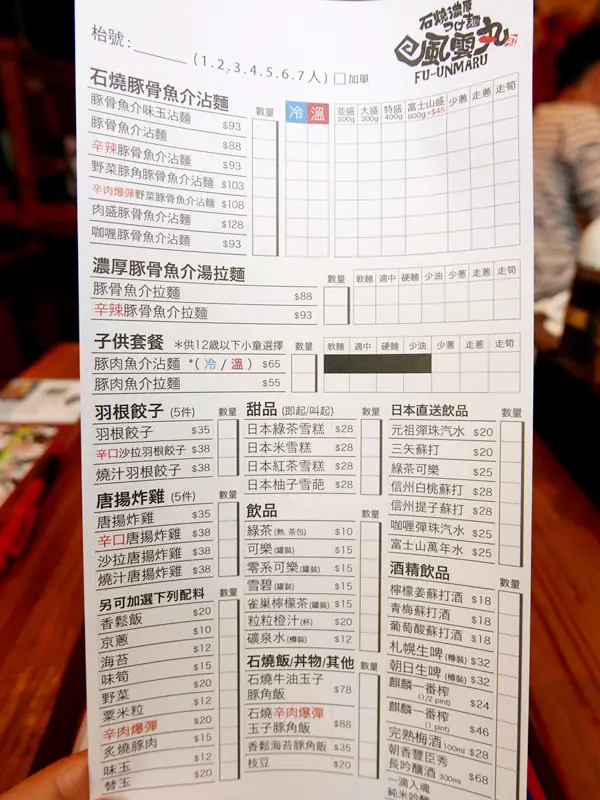 枱號:
(1.2.3.4.5.6.7人) 加單
石燒濃厚
つけ麵
風雲丸
FU-UNMARU
石燒豚骨魚介沾麵 數量 冷 溫 並盛 200g 大盛 300g 特盛 400g 富士山盛 800g +$45 少蔥 走蔥 走筍
豚骨魚介味玉沾麵 $93
豚骨魚介沾麵 $88
辛辣豚骨魚介沾麵 $93
野菜豚角豚骨魚介沾麵 $103
辛肉爆彈野菜豚骨魚介沾麵 $108
肉盛豚骨魚介沾麵 $128
咖喱豚骨魚介沾麵 $93
濃厚豚骨魚介湯拉麵 數量 軟麵 適中 硬麵 少油 少蔥 走蔥 走筍
豚骨魚介拉麵 $88
辛辣豚骨魚介拉麵 $93
子供套餐 *供12歲以下小童選擇 數量 軟麵 適中 硬麵 少油 少蔥 走蔥 走筍
豚肉魚介沾麵 *( 冷 / 溫 ) $65
豚肉魚介拉麵 $55
羽根餃子 (5件) 數量
羽根餃子 $35
辛口沙拉羽根餃子 $38
燒汁羽根餃子 $38
唐揚炸雞 (5件) 數量
唐揚炸雞 $35
辛口唐揚炸雞 $38
沙拉唐揚炸雞 $38
燒汁唐揚炸雞 $38
另可加選下列配料 數量
香鬆飯 $20
京蔥 $10
海苔 $12
味筍 $15
野菜 $20
粟米粒 $12
辛肉爆彈 $20
炙燒豚肉 $15
味玉 $12
替玉 $20
甜品 (即起/叫起) 數量
日本綠茶雪糕 $28
日本米雪糕 $28
日本紅茶雪糕 $28
日本柚子雪葩 $28
飲品 數量
綠茶 (熱, 茶包) $10
可樂 (罐裝) $15
零系可樂 (罐裝) $15
雪碧 (罐裝) $15
雀巢檸檬茶 (罐裝) $15
粒粒橙汁 (杯) $20
礦泉水 (樽裝) $12
石燒飯/丼物/其他 數量
石燒牛油玉子
豚角飯 $78
石燒辛肉爆彈
玉子豚角飯 $88
香鬆海苔豚角飯 $35
枝豆 $20
日本直送飲品 數量
元祖彈珠汽水 $20
三矢蘇打 $20
綠茶可樂 $25
信州白桃蘇打 $28
信州提子蘇打 $28
咖喱彈珠汽水 $25
富士山萬年水 $25
酒精飲品 數量
檸檬姜蘇打酒 $18
青梅蘇打酒 $18
葡萄酸蘇打酒 $18
札幌生啤 (樽裝) $32
朝日生啤 (樽裝) $32
麒麟一番榨
(1/2 pint) $24
麒麟一番榨
(1 pint) $46
完熟梅酒 100ml $28
朝香豐臣秀
長吟釀酒 300ml $68
一滴入魂
純米吟釀